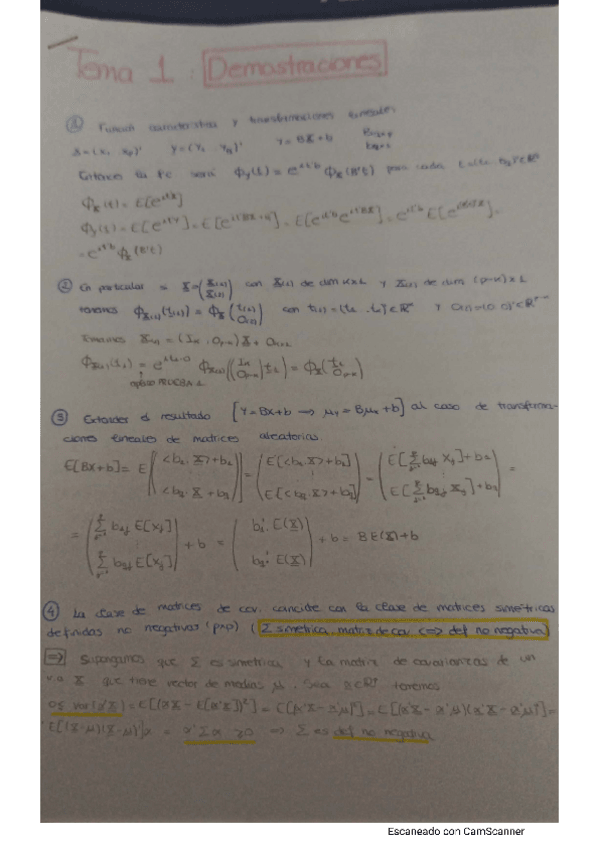 Tema 1 Demostraciones
① Función característica y transformaciones lineales
X=(X₁ Xp)' Y=(Y₁ Yq)' Y=BX+b Bq×p bq×1
Entonces la fc será Φy(t) = e^{it'b} Φx(B't) para cada
Φx(t) = E[e^{it'X}]
Φy(t) = E[e^{it'Y}] = E[e^{it'(BX+b)}] = E[e^{it'b} e^{it'BX}] = e^{it'b} E[e^{i(B't)'X}] =
= e^{it'b} Φx(B't)
② En particular si X=(X(1) X(2)) con X(1) de dim k×1 y X(2) de dim (p-k)×1
tenemos Φx(1)(t(1)) = Φx(t(1) 0(2)) con t(1)=(t1..tk)'∈ℝᵏ y 0(2)=(0..0)'∈ℝᵖ⁻ᵏ
Tenemos X(1) = (Ik, 0p-k)X + 0k×1
Φx(1)(t1) = Φx((Ik 0p-k)t1) = Φx(t1 0p-k)
aplico PRUEBA 1
③ Extender el resultado [Y=BX+b → μy = Bμx+b] al caso de transforma-
ciones lineales de matrices aleatorias.
E[BX+b] = E(<b1·X>+b1 ⋮ <bq·X+bq) = (E[<b1·X>+b1] ⋮ E[<bq·X>+bq]) = (E[Σ b1j Xj]+b1 ⋮ E[Σ bqj Xj]+bq) =
= (Σ b1j E[Xj] Σ bqj E[Xj]) + b = (b1' E(X) bq' E(X)) + b = B E(X)+b
④ La clase de matrices de cov. coincide con la clase de matrices simétricas
definidas no negativas (p×p) (Σ simetrica, matriz de cov. <=> def no negativa)
=> Supongamos que Σ es simetrica y la matriz de covarianzas de un
v.a X que tiene vector de medias μ. Sea α∈ℝᵖ tenemos
0≤ var(α'X) = E[(α'X - E[α'X])²] = E[(α'X - α'μ)²] = E[(α'X - α'μ)(α'X - α'μ)'] =
E[(X-μ)(X-μ)']α = α'Σα ≥0 => Σ es def no negativa
Escaneado con CamScanner